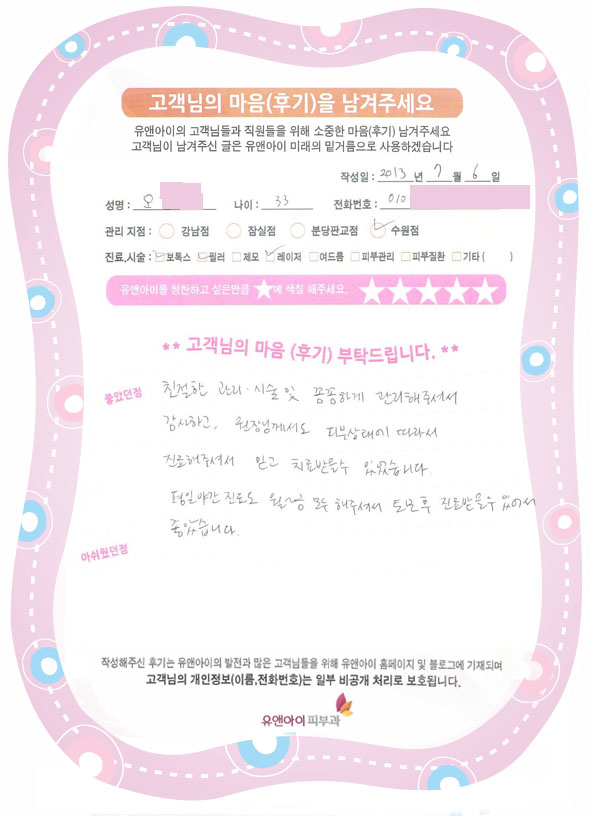 고객님의 마음(후기)을 남겨주세요
유앤아이의 고객님들과 직원들을 위해 소중한 마음(후기) 남겨주세요
고객님이 남겨주신 글은 유앤아이 미래의 밑거름으로 사용하겠습니다
작성일 : 2013 년 7 월 6 일
성명 : 오 나이 : 33 전화번호 : 010
관리 지점 : 강남점 잠실점 분당판교점 수원점
진료,시술 : 보톡스 필러 제모 레이저 여드름 피부관리 피부질환 기타 ( )
유앤아이를 칭찬하고 싶은만큼 ★에 색칠 해주세요. ★★★★★
** 고객님의 마음 (후기) 부탁드립니다. **
좋았던점
친절한 관리·시술 및 꼼꼼하게 관리해주셔서
감사하고, 원장님께서도 피부상태에 따라서
진료해주셔서 믿고 치료받을수 있었습니다.
평일야간 진료도 월~금 모두 해주셔서 퇴근후 진료받을수 있어서
좋았습니다.
아쉬웠던점
작성해주신 후기는 유앤아이의 발전과 많은 고객님들을 위해 유앤아이 홈페이지 및 블로그에 기재되며
고객님의 개인정보(이름,전화번호)는 일부 비공개 처리로 보호됩니다.
유앤아이피부과